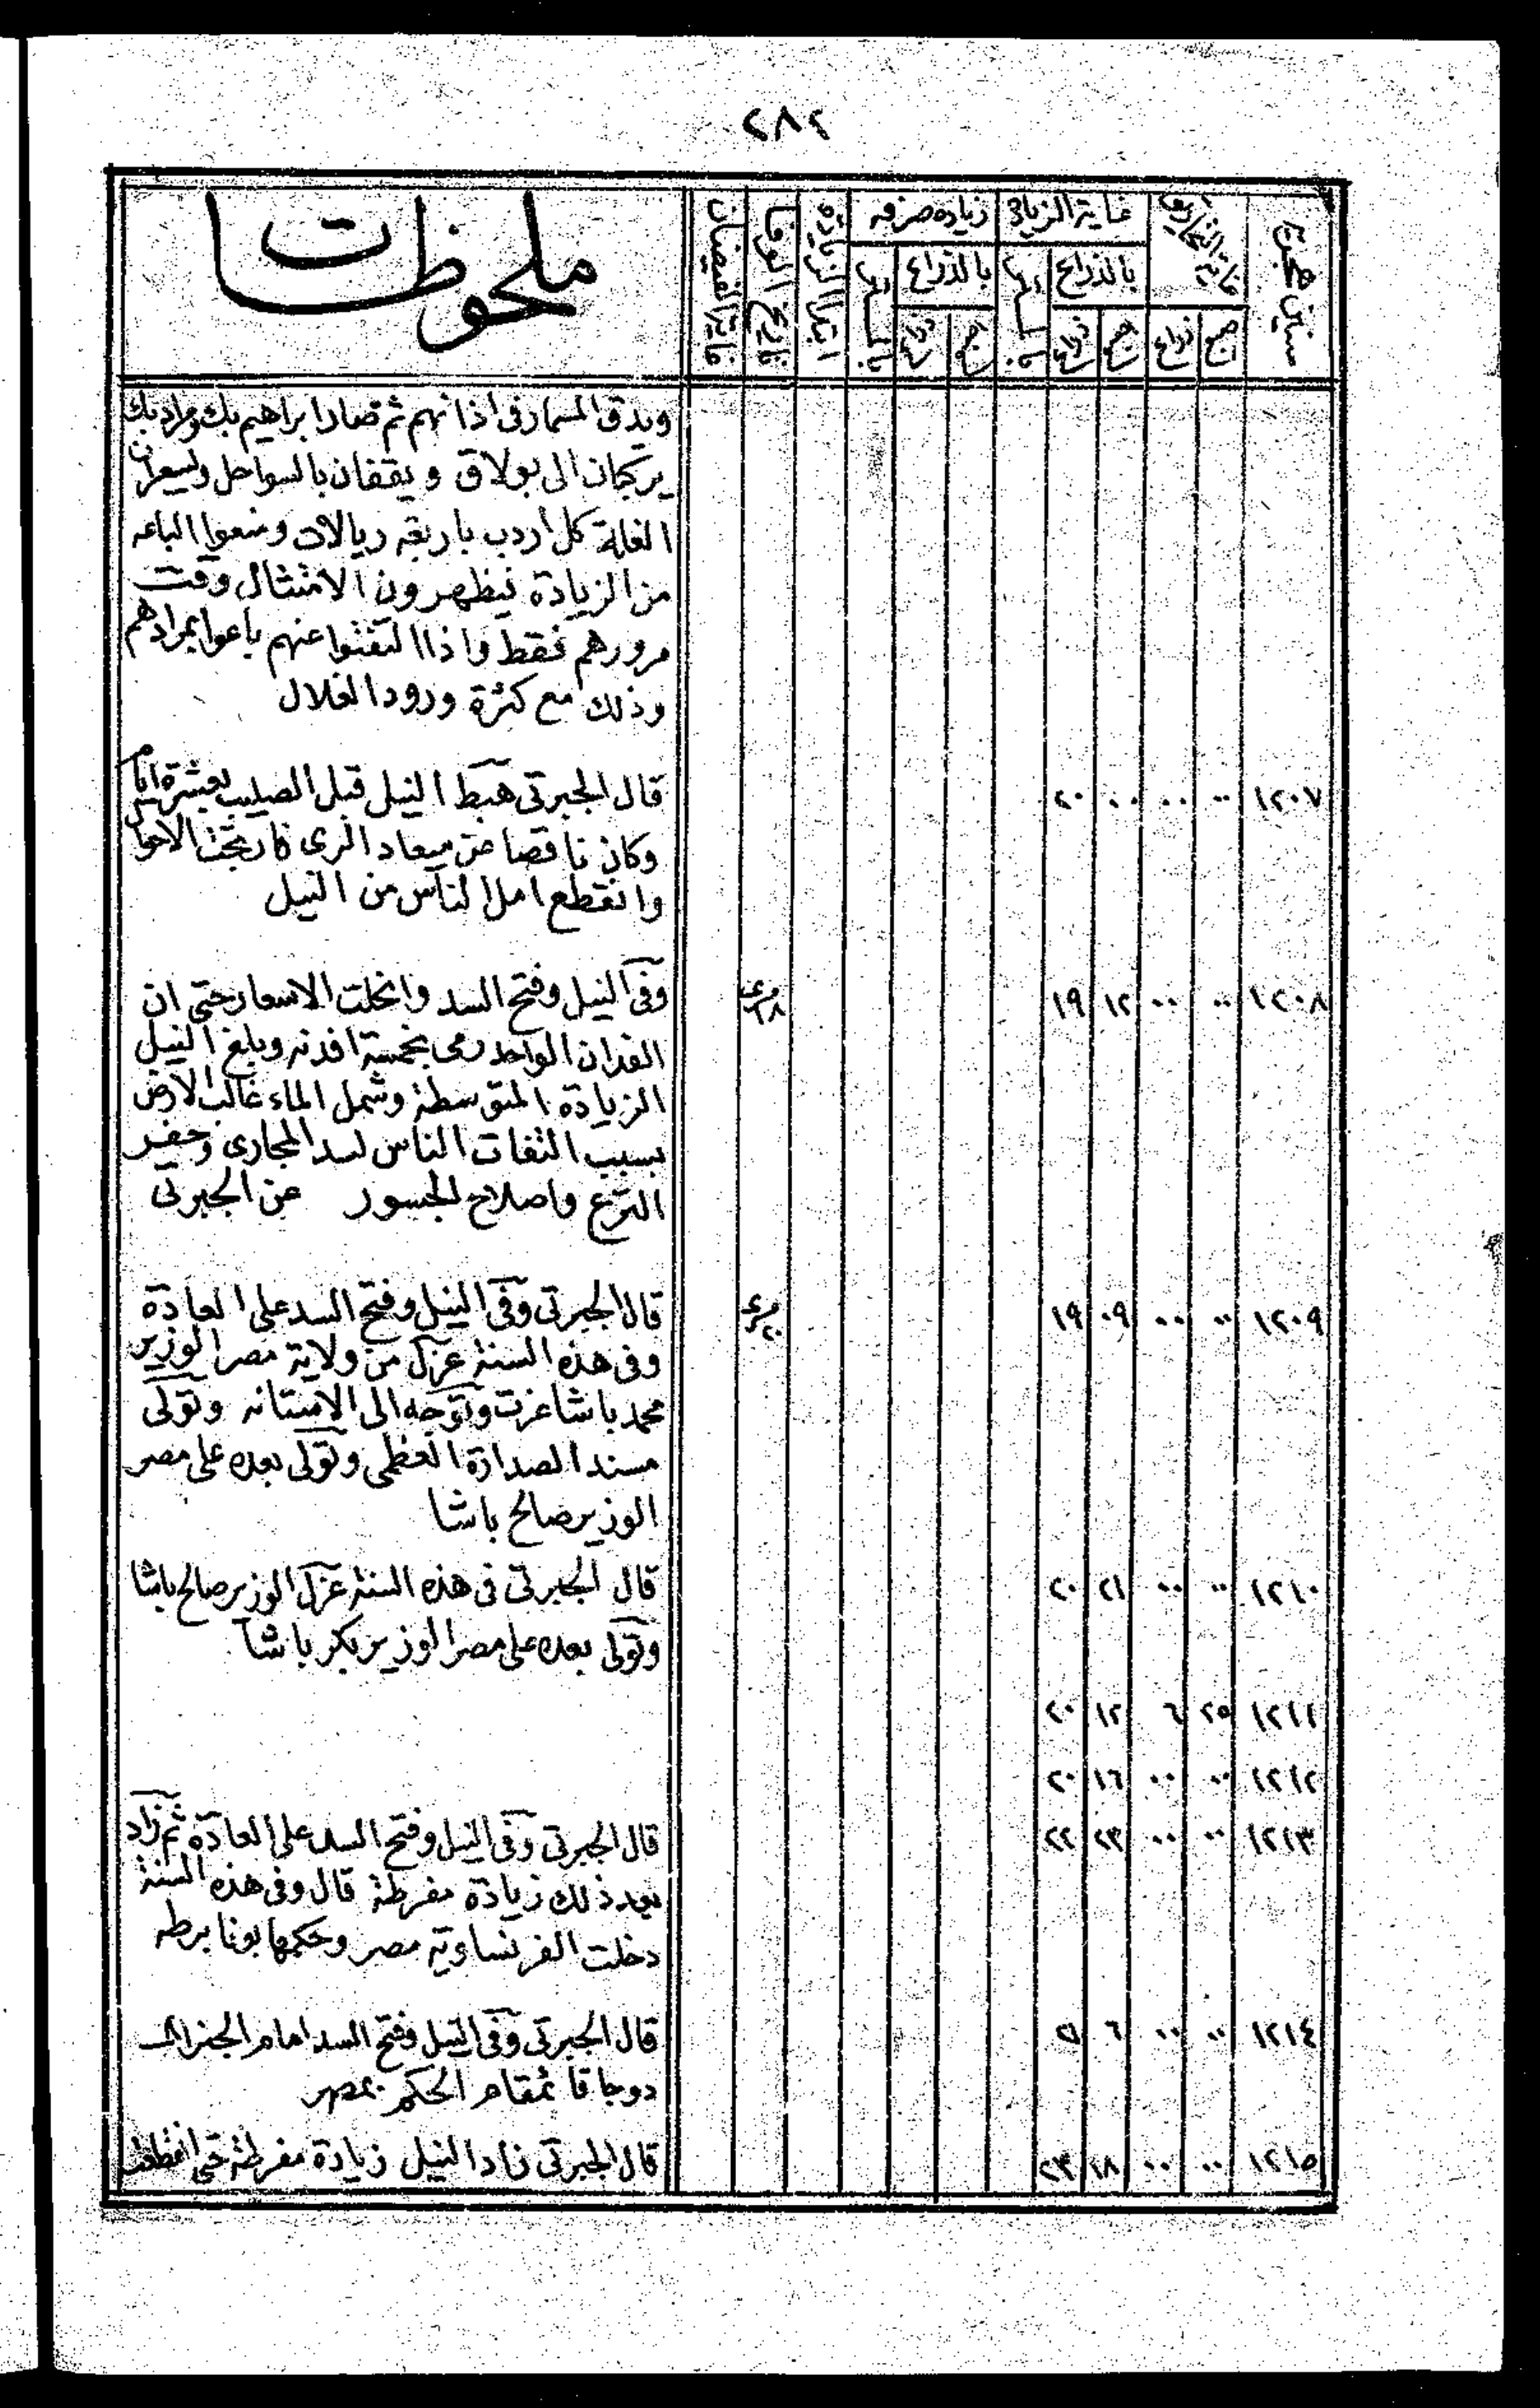 ٢٨٢
سنين هجرية
غاية التحاريق
غاية الزيادة
زيادة صرفه
ابتدا الزيادة
تاريخ الوفا
غاية الفيضان
ملحوظات
بالذراع
بالذراع
ذراع
ذراع
ذراع
ويدق المسمار فى اذانهم ثم صار ابراهيم بك ومراد بك
يركبان الى بولاق ويقفان بالسواحل ويسعران
الغلة كل اردب باربعة ريالات ومنعوا الباعه
من الزيادة فيظهرون الامتثال وقت
مرورهم فقط واذا التفتوا عنهم باعوا بمرادهم
وذلك مع كثرة ورود الغلال
١٢٠٧ ٠٠ ٠٠ ٠٠ ٢٠
قال الجبرتى هبط النيل قبل الصليب بعشرة ايام
وكان ناقصا عن ميعاد الرى فارتجت الاحوا
وانقطع امل الناس من النيل
١٢٠٨ ٠٠ ٠٠ ١٢ ١٩
وفى النيل وفتح السد وانحلت الاسعار حتى ان
الفدان الواحد رمى بخمسة افدنه وبلغ النيل
الزيادة المتوسطة وشمل الماء غالب الارض
بسبب التفات الناس لسد المجارى وحفر
الترع واصلاح الجسور عن الجبرتى
١٢٠٩ ٠٠ ٠٠ ٠٩ ١٩
قال الجبرتى وفى النيل وفتح السد على العادة
وفى هذه السنة عزل من ولاية مصر الوزير
محمد باشا عزت وتوجه الى الاستانه وتولى
مسند الصدارة العظمى وتولى بعده على مصر
الوزير صالح باشا
١٢١٠ ٠٠ ٠٠ ٢١ ٢٠
قال الجبرتى فى هذه السنة عزل الوزير صالح باشا
وتولى بعده على مصر الوزير بكر باشا
١٢١١ ٢٥ ٦ ١٢ ٢٠
١٢١٢ ٠٠ ٠٠ ١٦ ٢٠
١٢١٣ ٠٠ ٠٠ ٢٣ ٢٢
قال الجبرتى وفى النيل وفتح السد على العادة ثم زاد
بعد ذلك زيادة مفرطة قال وفى هذه السنة
دخلت الفرنساوية مصر وحكمها بونابرطه
١٢١٤ ٠٠ ٠٠ ٦
قال الجبرتى وفى النيل وفتح السد امام الجنرال
دوجا قائمقام الحكم بمصر
١٢١٥ ٠٠ ٠٠ ١٨ ٢٣
قال الجبرتى زاد النيل زيادة مفرطة حتى انقطعت